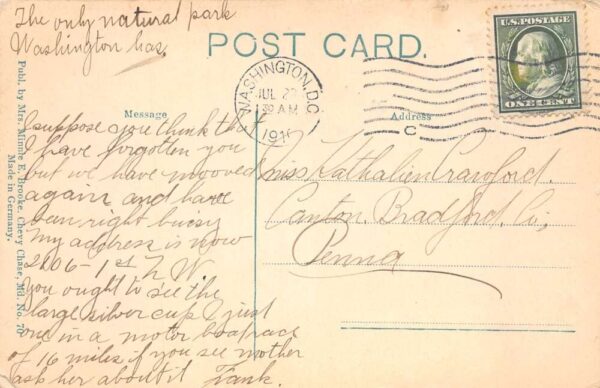 The only natural park
Washington has.
POST CARD.
U.S. POSTAGE
ONE CENT
WASHINGTON, D.C.
JUL 2
30 AM
191
C
Message
Address
I suppose you think that
I have forgotten you
but we have mooved
again and have
ben right buisy
My address is now
2106-1st N.W.
You ought to see the
large silver cup I just
one in a motor boat race
of 16 miles if you see mother
ask her about it Frank.
Miss Kathalien Crawford.
Canton. Bradford. Co.,
Penna
Publ. by Mrs. Minnie E. Brooke, Chevy Chase, Md. No. 70
Made in Germany.